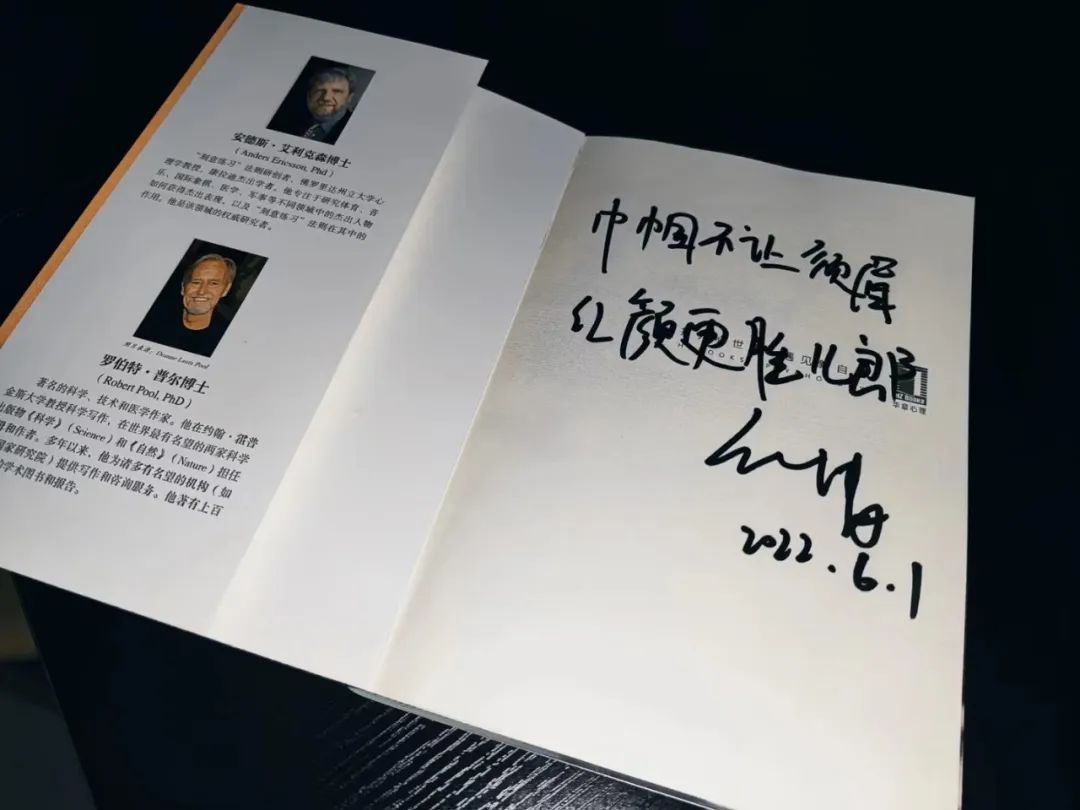 安德斯·艾利克森博士
(Anders Ericsson, Phd)
“刻意练习”法则研创者，佛罗里达州立大学心
理学教授，康拉迪杰出学者。他专注于研究体育、音
乐、国际象棋、医学、军事等不同领域中的杰出人物
如何获得杰出表现，以及“刻意练习”法则在其中的
作用。他是该领域的权威研究者。
Pool
罗伯特·普尔博士
(Robert Pool, PhD)
著名的科学、技术和医学作家。他在约翰·霍普
金斯大学教授科学写作，在世界最有名望的两家科学
出版物《科学》(Science)和《自然》(Nature)担任
和作者。多年以来，他为诸多有名望的机构（如
国家研究院）提供写作和咨询服务。他著有上百
学术图书和报告。
巾帼不让须眉
红颜更胜儿郎
世 遇见 自
华章心理
2022.6.1